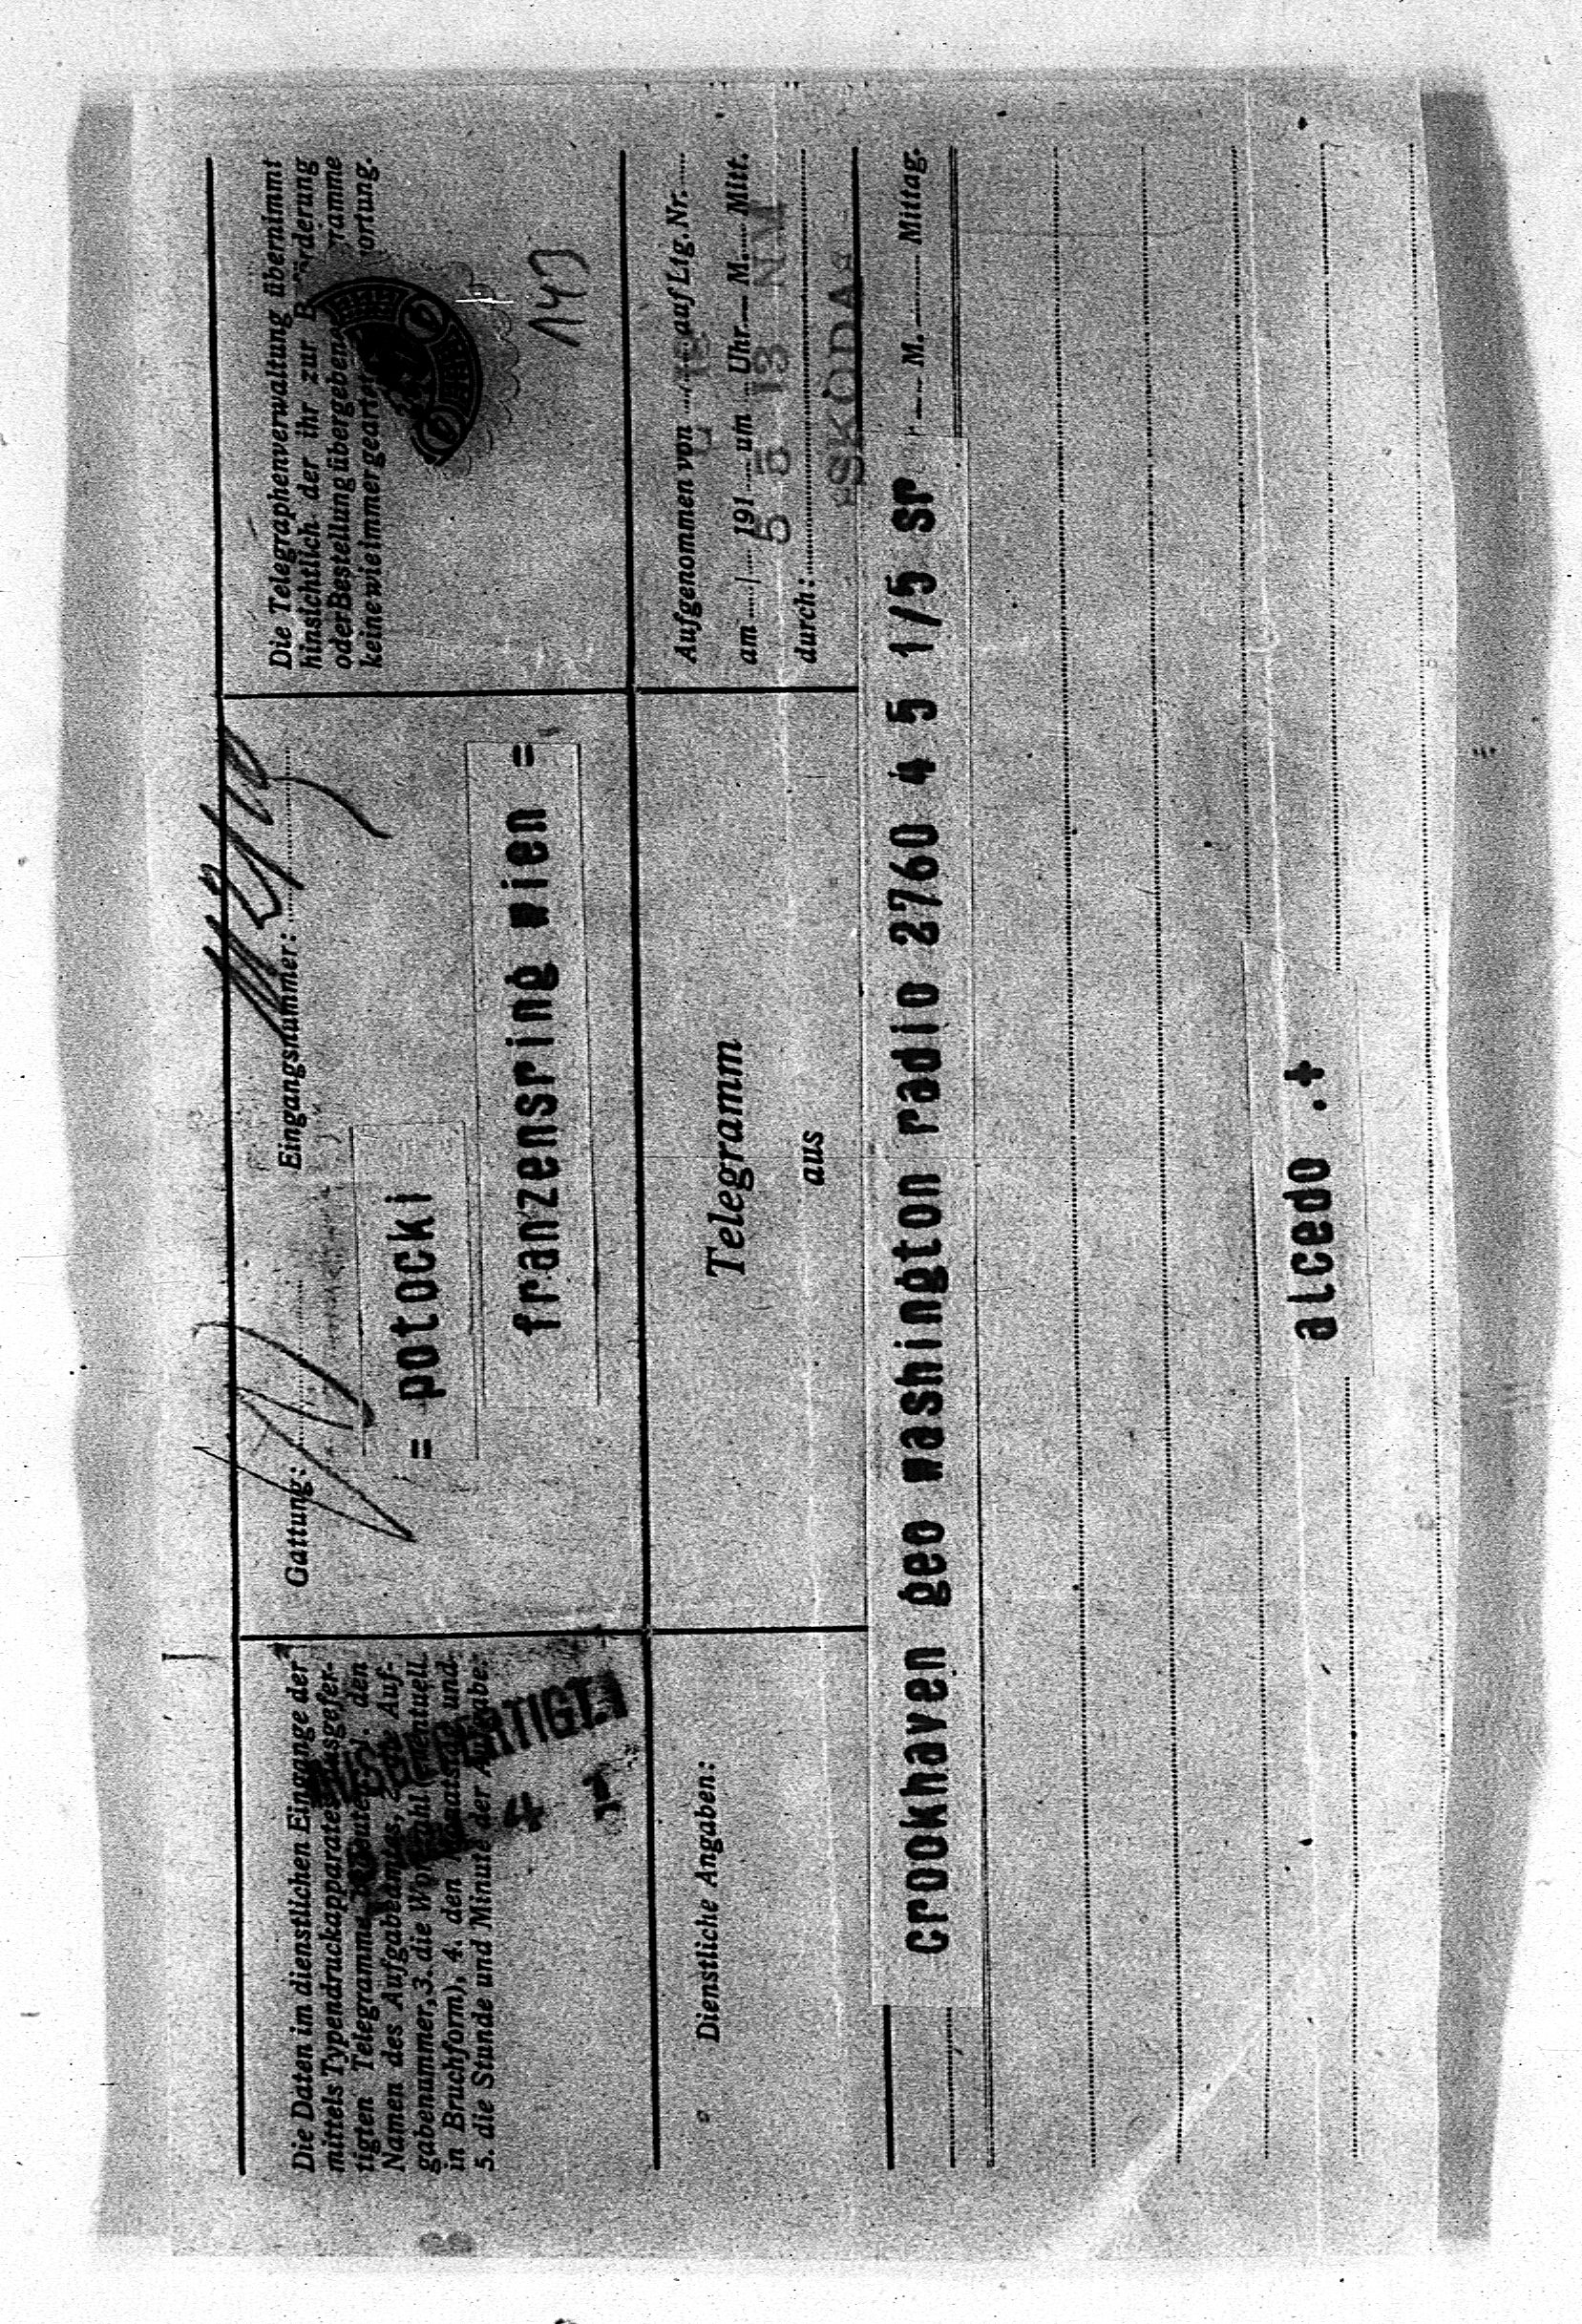 Die Daten im dienstlichen Eingange der
mittels Typendruckapparates ausgefer-
tigten Telegramme bedeuten: 1. den
Namen des Aufgabeamtes, 2. die Auf-
gabenummer, 3. die Wortzahl (eventuell
in Bruchform), 4. den Monatstag und
5. die Stunde und Minute der Aufgabe.
4
Gattung:
Eingangsnummer:
= potocki
franzensring wien =
Die Telegraphenverwaltung übernimmt
hinsichtlich der ihr zur Beförderung
oder Bestellung übergebenen
keine wie immer geartete
149
Dienstliche Angaben:
Telegramm
aus
Aufgenommen von auf Ltg. Nr.
am / 191 um Uhr M. Mitt.
5 5 13 NM
durch:
SKODA
crookhaven geo washington radio 2760 4 5 1/5 sr
M. Mittag.
alcedo .+